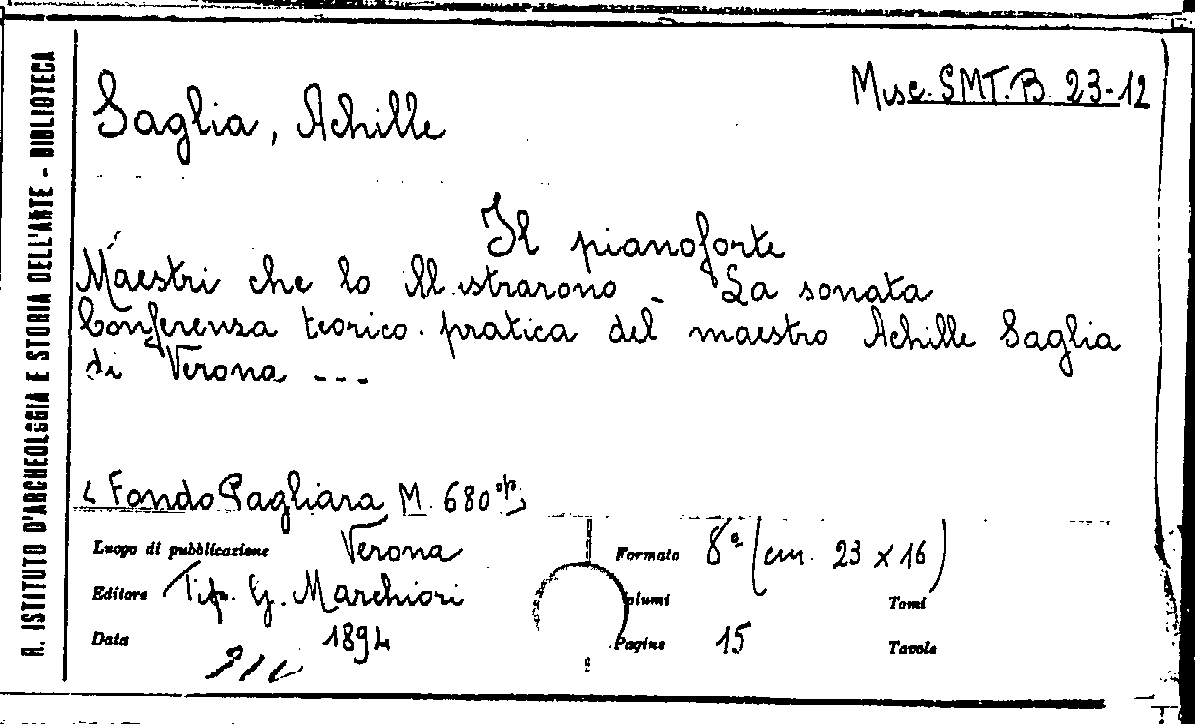 Misc. SMT. B. 23-12
Saglia, Achille
Il pianoforte
Maestri che lo illustrarono - La sonata
Conferenza teorico-pratica del maestro Achille Saglia
di Verona ---
Fondo Pagliara M. 680
R. ISTITUTO D'ARCHEOLOGIA E STORIA DELL'ARTE - BIBLIOTECA
Luogo di pubblicazione Verona
Formato 8° (cm. 23 x 16)
Editore Tip. G. Marchiori
olumi
Tomi
Data 1894
Pagine 15
Tavole